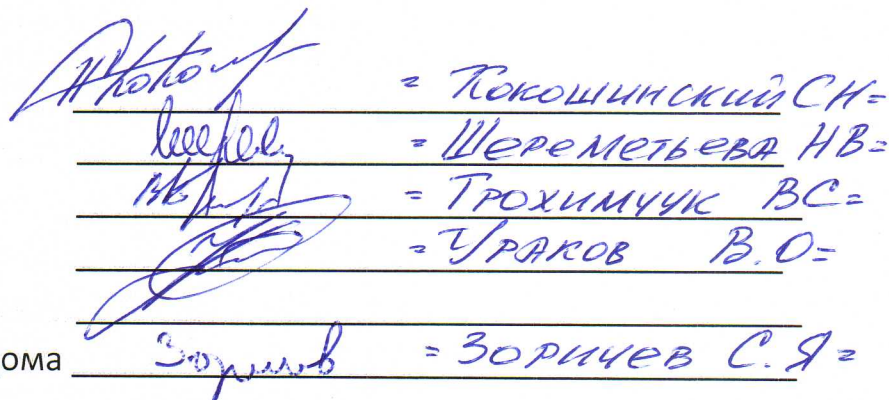 = Кокошинский СН=
= Шереметьева НВ=
= Трохимчук ВС=
= Ураков В.О=
ома Зоричев = Зоричев С.Я=